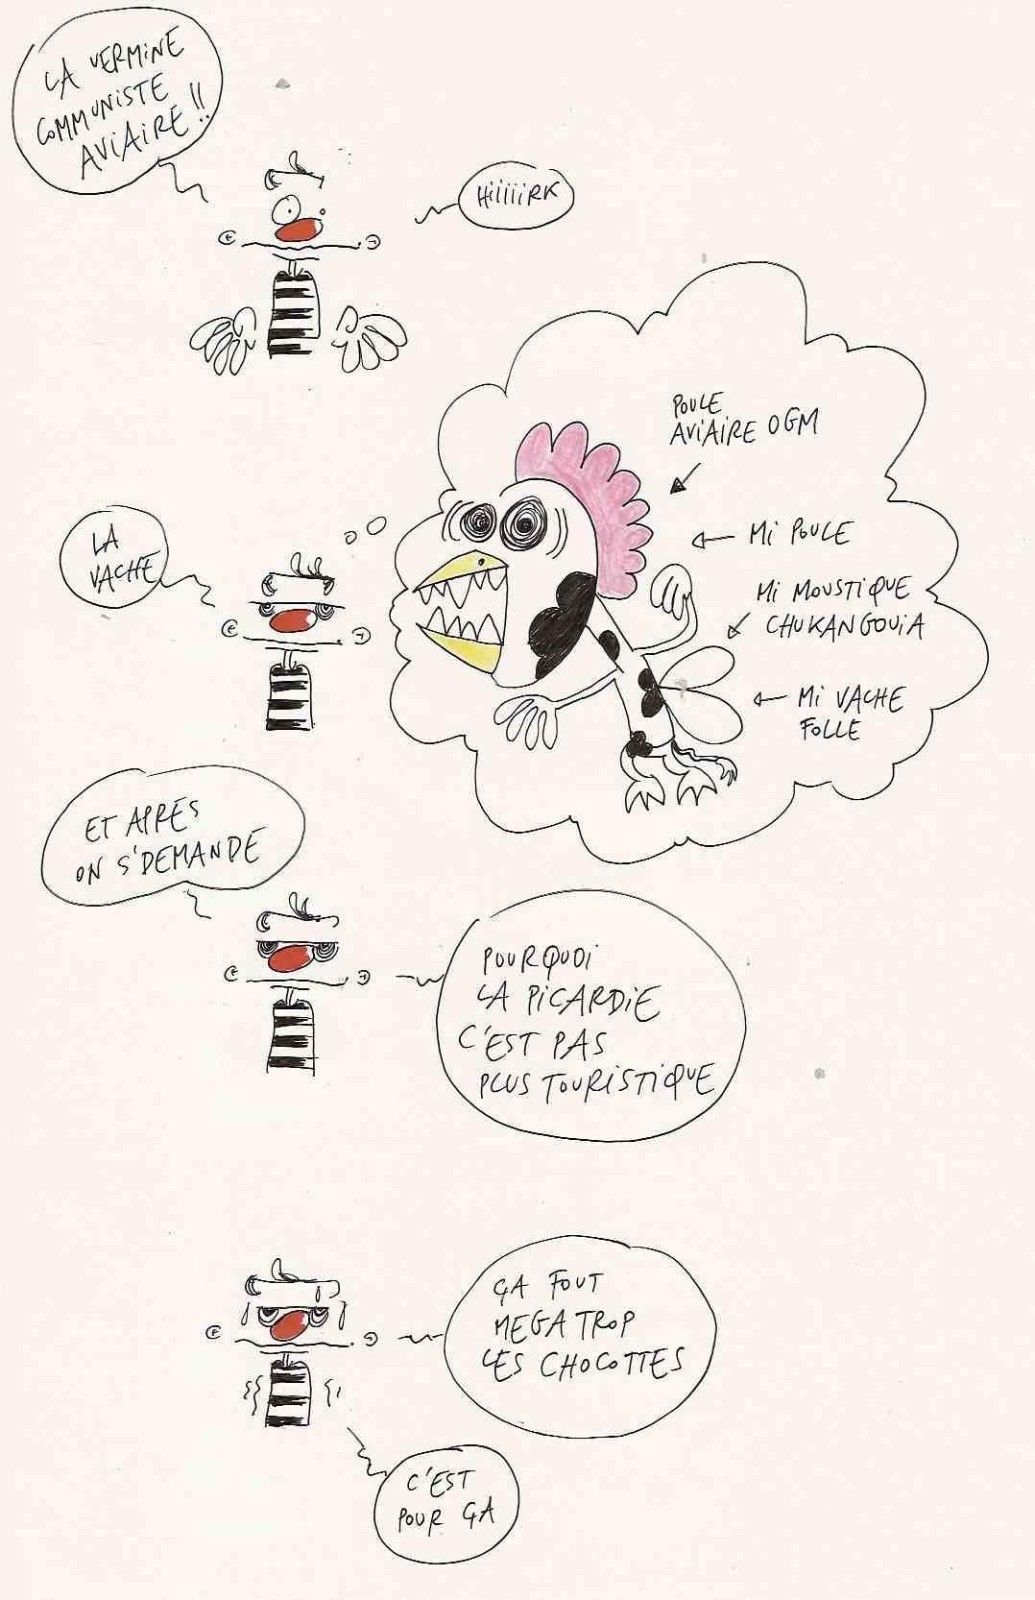 LA VERMINE
COMMUNISTE
AVIAIRE !!
HiiiiiRK
POULE
AVIAIRE OGM
MI POULE
MI MOUSTIQUE
CHUKANGOUIA
MI VACHE
FOLLE
LA
VACHE
ET APRES
ON S'DEMANDE
POURQUOI
LA PICARDIE
C'EST PAS
PLUS TOURISTIQUE
ÇA FOUT
MEGA TROP
LES CHOCOTTES
C'EST
POUR ÇA